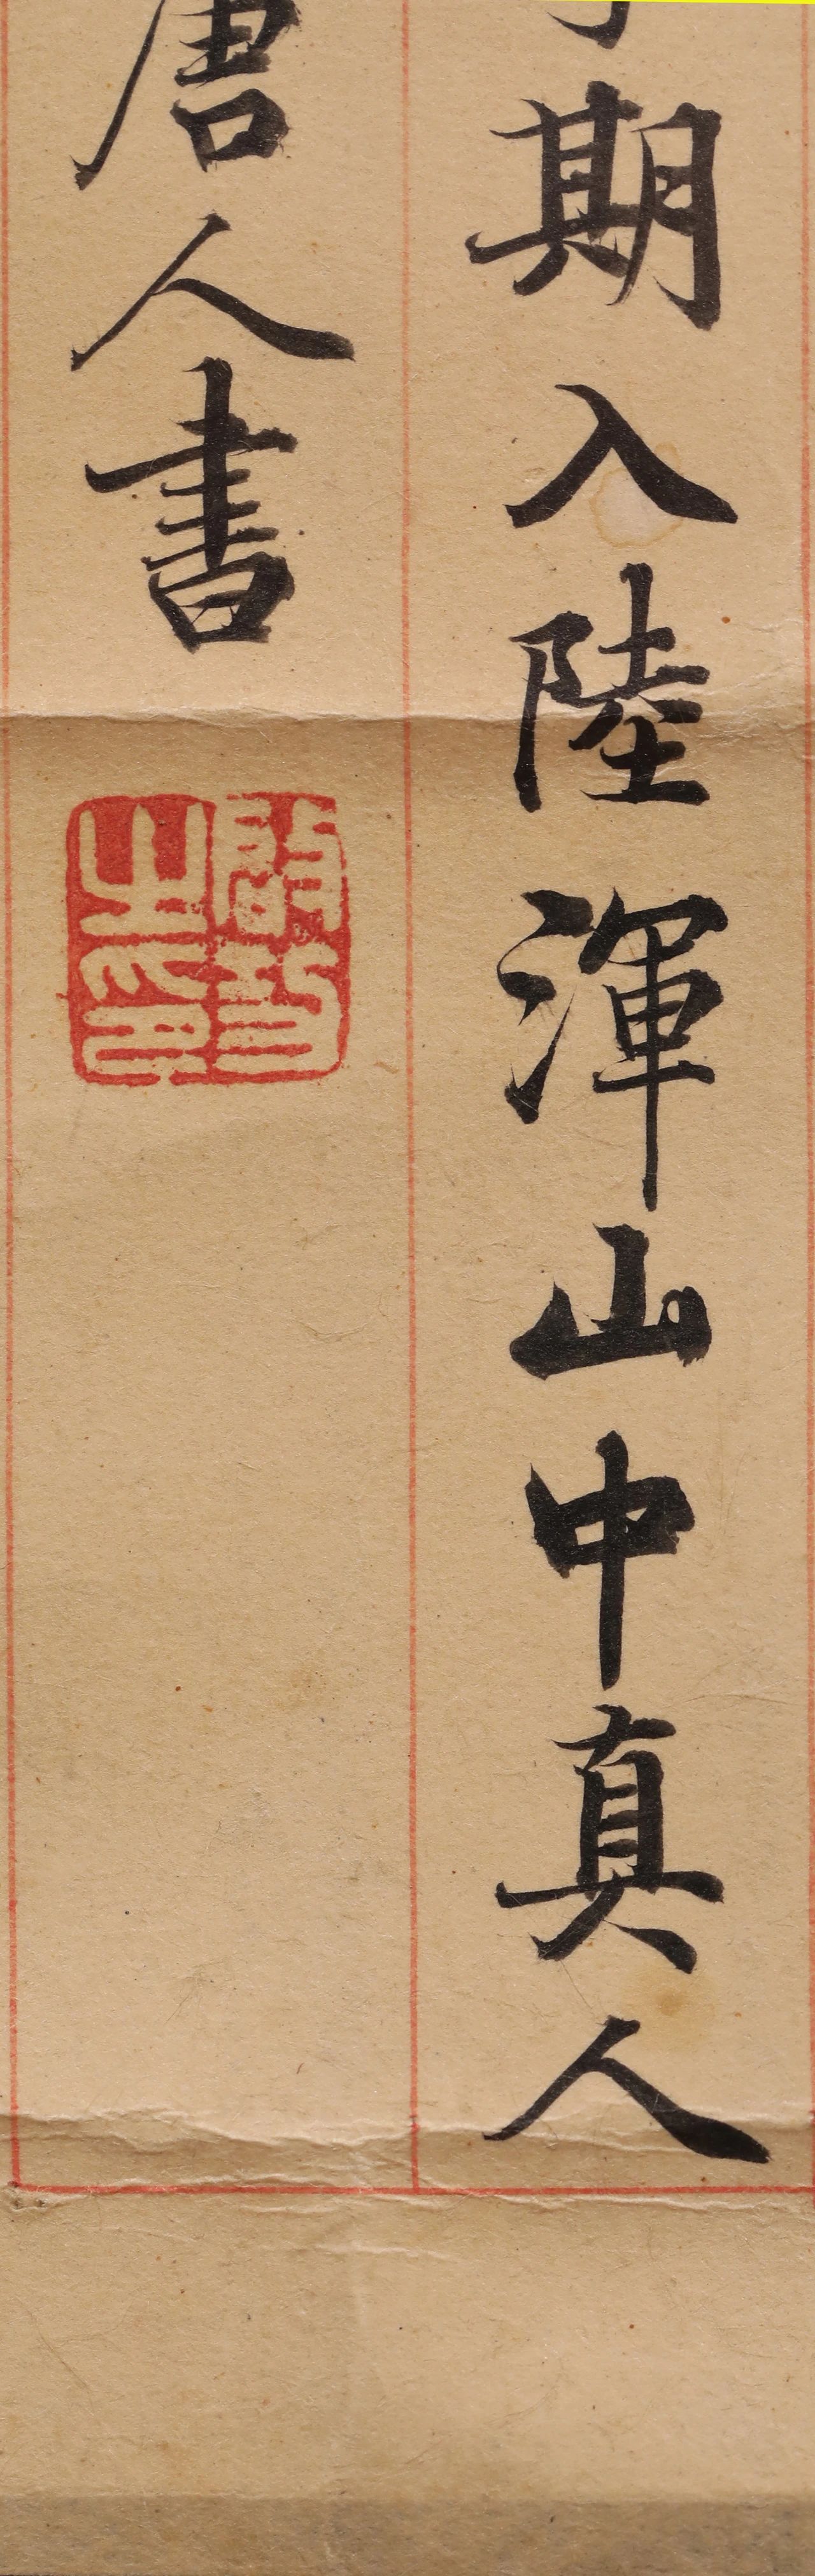 期入陸渾山中真人
唐人書
之印